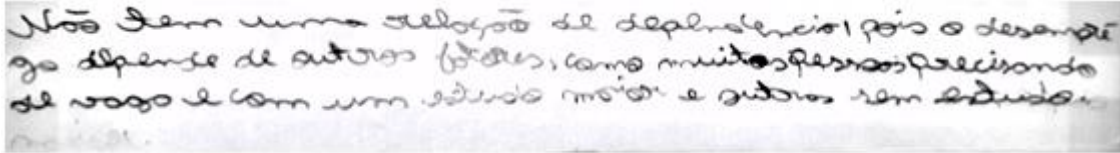 Não tem uma relação de dependencia, pois o desempre
go depende de outros fatores, como muitas pessoas precisando
de vaga e com um estudo maior e outros sem estudos